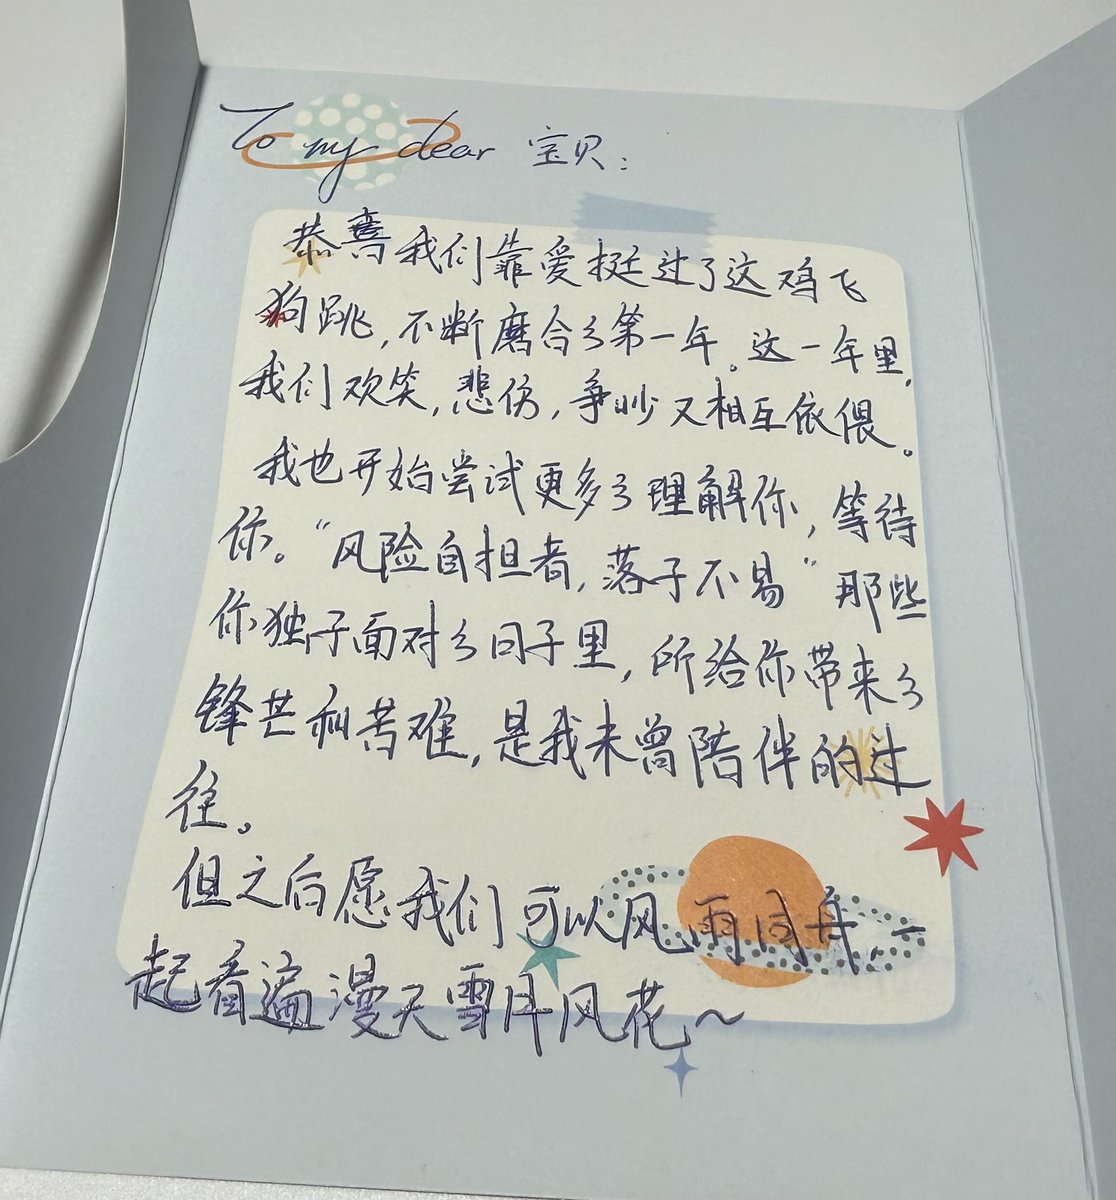 To my dear 宝贝：
恭喜我们靠爱挺过了这鸡飞
狗跳,不断磨合的第一年。这一年里,
我们欢笑,悲伤,争吵又相互依偎。
我也开始尝试更多的理解你,等待
你。“风险自担者,落子不易”那些
你独子面对的日子里,所给你带来的
锋芒和苦难,是我未曾陪伴的过
往。
但之后愿我们可以风雨同舟,一
起看遍漫天雪月风花~